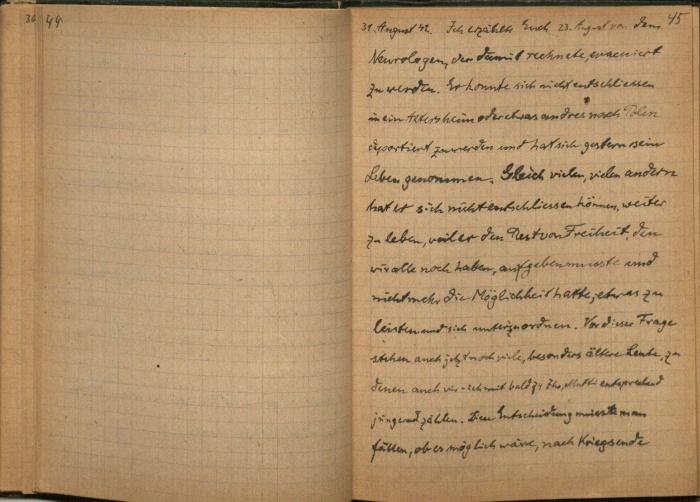 30 44
45
31. August 42. Ich erzählte Euch 23. August von dem
Neurologen, der damit rechnete, evacuiert
zu werden. Er konnte sich nicht entschliessen
in ein Altersheim oder etwas andres nach Polen
deportiert zu werden und hat sich gestern sein
Leben genommen. Gleich vielen, vielen andern
hat er sich nicht entschliessen können, weiter
zu leben, weil er den Rest von Freiheit, den
wir alle noch haben, aufgeben musste und
nicht mehr die Möglichkeit hatte, etwas zu
leisten und sich unterzuordnen. Vor dieser Frage
stehen auch jetzt noch viele, besonders ältere Leute, zu
denen auch wir - ich mit bald 71 Jhr, Mutti entsprechend
jünger zählen. Die Entscheidung müsste man
fällen, ob es möglich wäre, nach Kriegsende